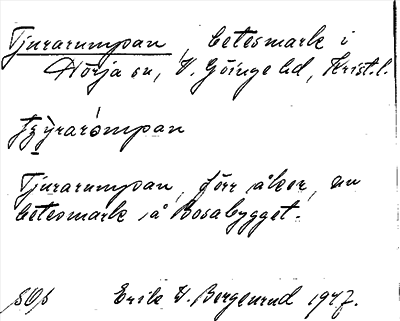 Tjurarumpan, betesmark i
Hörja sn, V. Göinge hd, Krist.l.
Tjurarumpan, förr åker, nu
betesmark å Bosabygget.
Erik V. Bergenrud 1947.